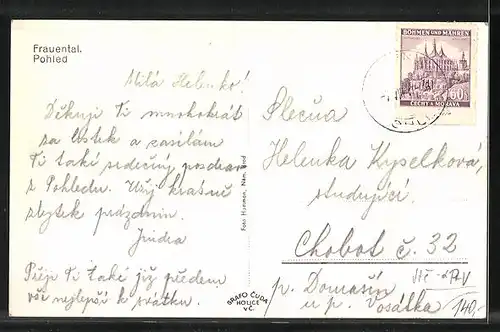 Frauental.
Pohled
Milá Helenko!
Děkuji Ti mnohokrát
za lístek a zasílám
Ti také srdečný pozdrav
z Pohledu. Užij krásně
zbytek prázdnin.
Jindra
Přeji Ti také již předem
vše nejlepší k svátku.
Foto Hamman, Něm. Brod
GRAFO ČUDA
HOLICE
v Č.
BÖHMEN UND MÄHREN
60
ČECHY A MORAVA
Slečna
Helenka Kyselková,
studující
Chobot č. 32
p. Domašín
u p. Vosátka
140,-